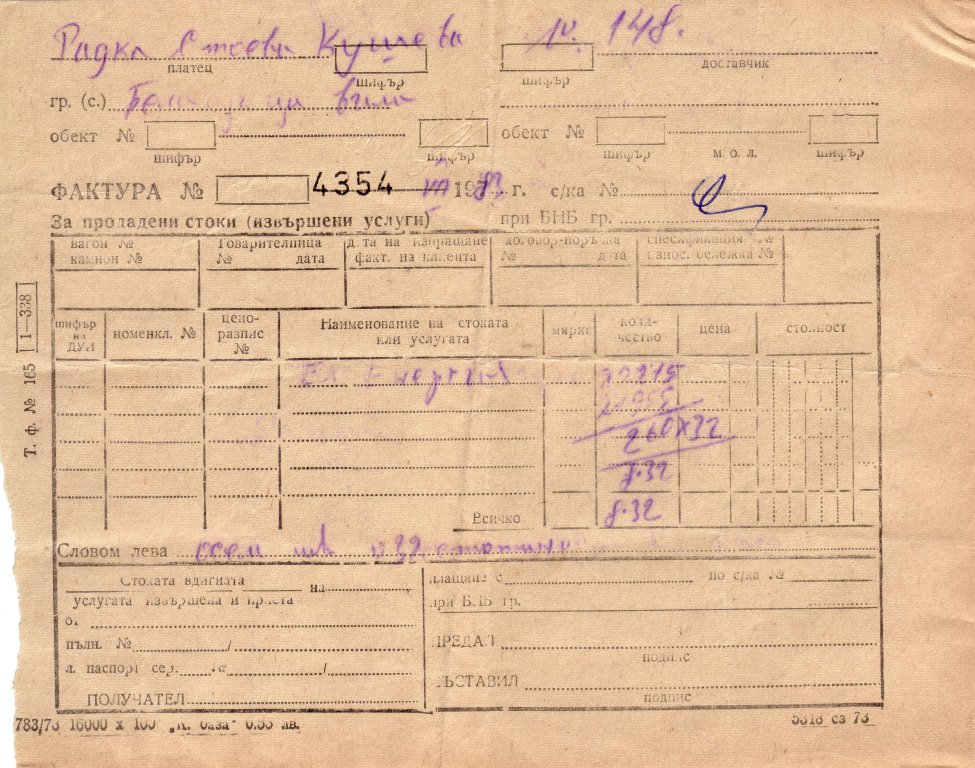 Радка Стоева Кушева 148.
платец шифър шифър доставчик
гр. (с.) вили
обект № обект №
шифър шифър шифър м. о. л. шифър
ФАКТУРА № 4354 III 1983 г. с/ка №
За продадени стоки (извършени услуги) при БНБ гр.
вагон № Товарителница дата на изпращане договор-поръчка спесификация №
камион № № дата факт. на клиента № дата износ. бележка №
шифър на ДУИ номенкл. № цено-разпис № Наименование на стоката или услугата мярка коли-чество цена стойност
Ел. Енергия 30215
260 х 32
8.32
Всичко 8.32
Словом лева осем лв и 32 стотинки
Стоката вдигната на плащане с по с/ка №
услугата извършена и приета при БНБ гр.
от
пълн. № / ПРЕДАЛ
подпис
л. паспорт сер. № / СЪСТАВИЛ
ПОЛУЧАТЕЛ подпис
Т. ф. № 165 1—338
783/73 16000 х 100 „К. база" 0.55 лв. 5318 сз 73